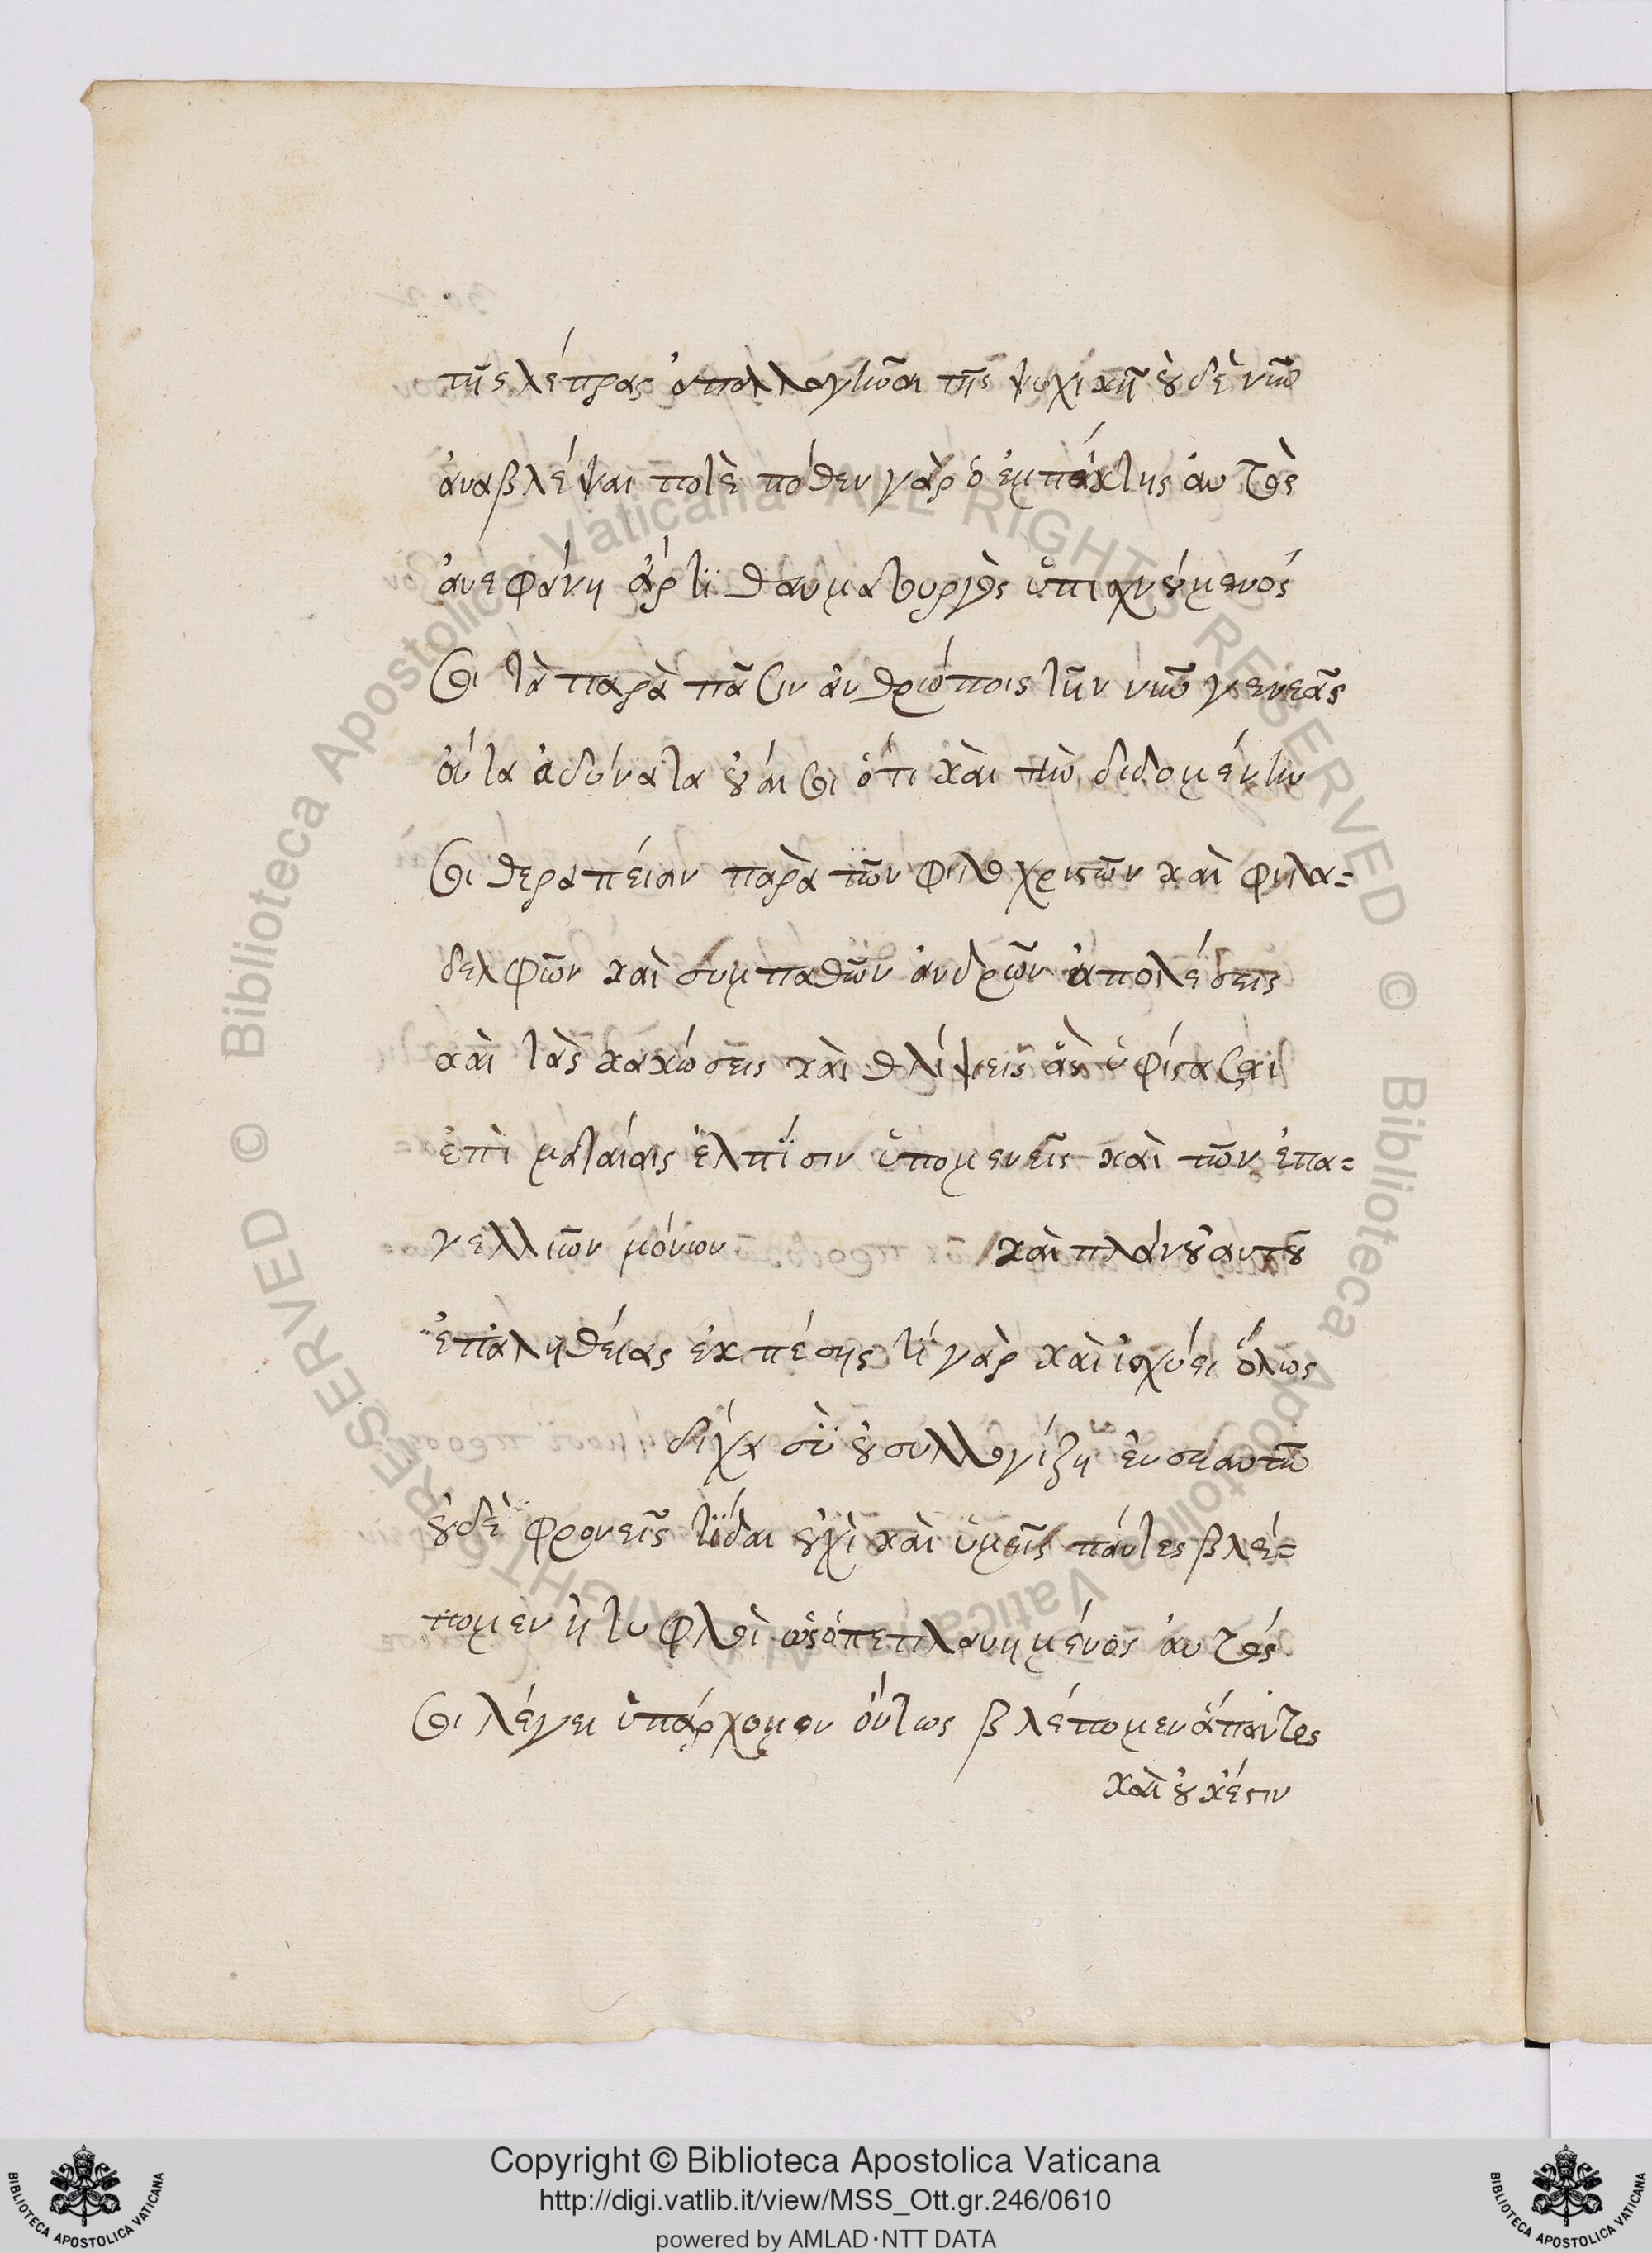 τῆς λέπρας ἀπαλλαγῆναι τῆς ψυχικῆ οὐδὲ νῦν
ἀναβλέψαι ποτὲ πόθεν γὰρ ὁ ἐμπάικτης ἀυτὸς
ἀνεφάνη ἄρτϊ θαυματουργὸς ὑπισχνούμενός
σοι τὰ παρὰ πᾶσιν ἀνθρώποις τῆν νῦν γενεᾶς
ὄντα ἀδύνατα οὐαί σοι ὅτι καὶ τὴν διδομένην
σοι θεραπείαν παρὰ τῶν φιλοχρίστων καὶ φιλα=
δελφῶν καὶ συμπαθῶν ἀνδρῶν ἀπολέσεις
καὶ τὰς κακώσεις καὶ θλίψεις ἃς ὑφίστασαι
ἐπὶ ματαίαις ἐλπίσιν ὑπομενεῖς καὶ τῶν ἐπα=
γελλιῶν μόνων καὶ πλάνου αυτοῦ
ἐπαληθείας ἐκπέσης τί γὰρ καὶ ἰσχύει ὅλως
δίχα σὺ οὐ συλλογίζη ἐν σεαυτῶ
οὐδὲ φρονεῖς τΐδαι οὐχὶ καὶ ὑμεῖς πάντες βλέ=
πομεν ἢ τυφλοὶ ὡς ὁ πεπλανημένος ἀυτός
σοι λέγει ὑπάρχομεν ὄντως βλέπομεν ἅπαντες
καὶ οὐκέστιν
Copyright © Biblioteca Apostolica Vaticana
http://digi.vatlib.it/view/MSS_Ott.gr.246/0610
powered by AMLAD·NTT DATA